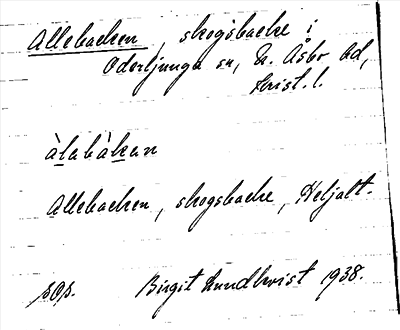 Allebacken, skogsbacke i
Oderljunga sn, N. Åsbo hd,
Krist. l.
àlabàkan
Allebacken, skogsbacke, Heljalt.
sOs. Birgit Lundkvist 1938.